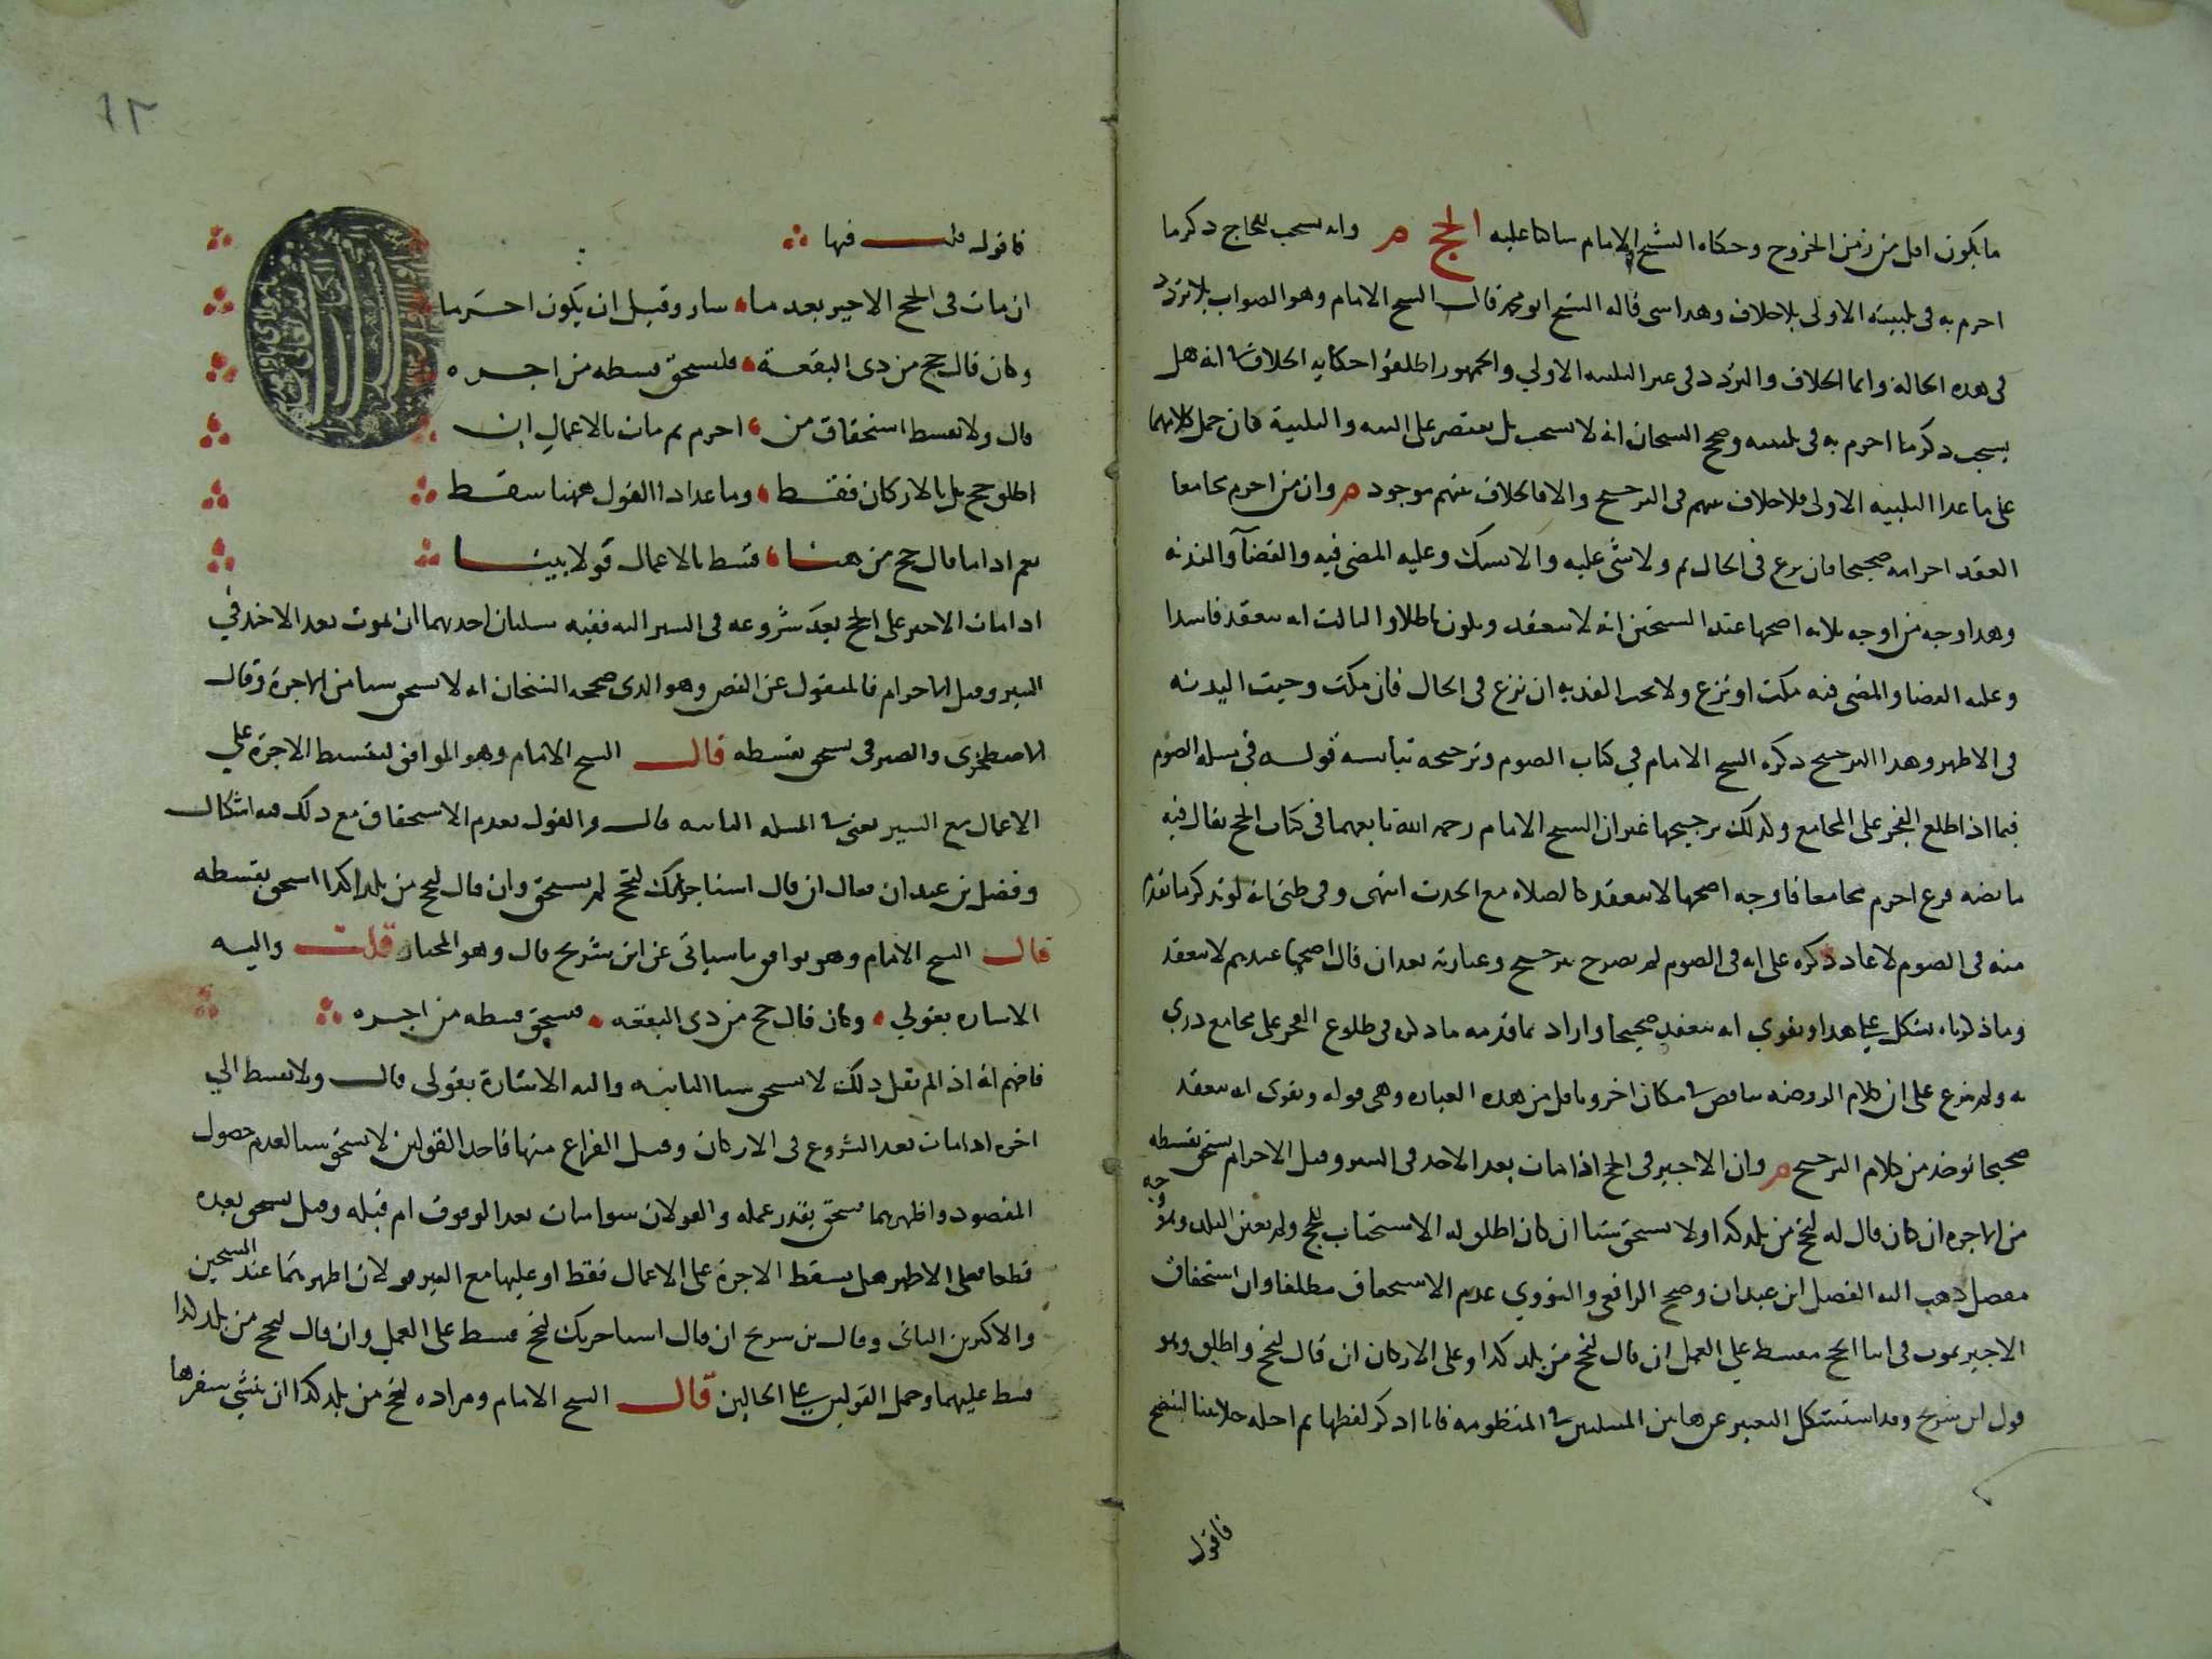 ما يكون اقل من زمن الخروج وحكاه الشيخ الامام ساكتا عليه الحج م وانه يستحب للحاج ذكر ما
احرم به في تلبيته الاولى بلا خلاف وهذا شي قاله الشيخ ابو محمد قال الشيخ الامام وهو الصواب بلا تردد
في هذه الحالة وانما الخلاف والتردد في غير التلبيه الاولي والجمهور اطلقوا حكايه الخلاف في انه هل
يستحب ذكر ما احرم به في تلبيته وصحح الشيخان انه لا يستحب بل يقتصر على النيه والتلبية فان حمل كلامهما
على ما عدا التلبيه الاولى فلا خلاف بينهم في الترجيح والا فالخلاف بينهم موجود م وان من احرم مجامعا
انعقد احرامه صحيحا فان نزع في الحال تم ولا شي عليه والا نسكه وعليه المضي فيه والقضآ والبدنه
وهذا وجه من اوجه ثلاثه اصحها عند الشيخين انه لا ينعقد ويكون باطلا والثالث انه ينعقد فاسدا
وعليه القضا والمضي فيه مكث او نزع ولا تجب الفديه ان نزع في الحال فان مكث وجبت البدنه
في الاظهر وهذا الترجيح ذكره الشيخ الامام في كتاب الصوم وترجيحه قوله في مسله الصوم
فيما اذا طلع الفجر على المجامع وكذلك ترجيحها غير ان الشيخ الامام رحمه الله تابعهما في كتاب الحج فقال فيه
ما نصه فرع احرم مجامعا فاوجه اصحها لا ينعقد كالصلاه مع الحدث انتهى وفي ظني انه لو تذكر ما تقدم
منه في الصوم لاعاد ذكره على انه في الصوم لم يصرح بترجيح وعبارته بعد ان قال اصحها عندهم لا ينعقد
وما ذكرناه يشكل على هذا ويقوي انه ينعقد صحيحا واراد بما قدمه ما ذكره في طلوع الفجر على مجامع دري
به ولم ينزع على ان كلام الروضه يناقض في مكان اخر وتامل من هذه العباره وهي قوله ويقوى انه ينعقد
صحيحا يوخذ من كلام الترجيح م وان الاجير في الحج اذا مات بعد الاخذ في السير وقبل الاحرام يستحق بقسطه
من الاجره ان كان قال له لتحج من بلد كذا ولا يستحق شيا ان كان اطلق له الاستحباب للحج ولم يعين البلد وهو وجه
مفصل ذهب اليه الفضل ابن عبدان وصحح الرافعي والنووي عدم الاستحقاق مطلقا وان استحقاق
الاجير يموت في اثنا الحج يقسط علي العمل ان قال لتحج من بلد كذا وعلى الاركان ان قال لتحج واطلق وهو
قول ابن سريج وقد استشكل التعبير عن هاتين المسلتين في المنظومه فانا اذكر لفظها ثم احله حلا بينا ليتضح
فاقول
فاقول قلت فيها
ان مات في الحج الاجير بعد ما سار وقبل ان يكون احرما
وكان قال حج من ذي البقعة فليستحق قسطه من اجره
قال ولا تقسط استحقاق من احرم ثم مات بالاعمال ان
اطلق حج بل بالاركان فقط وما عدا ذا القول ههنا سقط
نعم اذا ما قال حج من هنا قسط بالاعمال قولا بينا
اذا مات الاجير على الحج بعد شروعه في السير اليه ففيه مسلتان احدهما ان يموت بعد الاخذ في
السير وقبل الاحرام فالمنقول عن النص وهو الذي صححه الشيخان انه لا يستحق شيا من الاجرة وقال
الاصطخري والصيرفي يستحق بقسطه قال الشيخ الامام وهو الموافق لتقسيط الاجرة علي
الاعمال مع السير يعني في المسله الثانيه قال والقول بعدم الاستحقاق مع ذلك فيه اشكال
وفصل بن عبدان فقال ان قال استاجرتك لتحج لم يستحق وان قال لتحج من بلد كذا استحق بقسطه
قال الشيخ الامام وهو يوافق ما سياتي عن ابن سريج قال وهو المختار قلت واليه
الاشاره بقولي وكان قال حج من ذي البقعه فيستحق قسطه من اجره
فافهم انه اذا لم يقل ذلك لا يستحق شيا الثانيه واليه الاشارة بقولى قال ولا تقسط الي
اخره اذا مات بعد الشروع في الاركان وقبل الفراغ منها فاحد القولين لا يستحق شيا لعدم حصول
المقصود واظهرهما يستحق بقدر عمله والقولان سوا مات بعد الوقوف ام قبله وقيل يستحق بعده
قطعا فعلى الاظهر هل يسقط الاجرة على الاعمال فقط او عليها مع السير قولان اظهرهما عند الشيخين
والاكثرين الثاني وقال بن سريج ان قال استاجرتك لتحج قسط على العمل وان قال لتحج من بلد كذا
قسط عليهما وحمل القولين على الحالين قال الشيخ الامام ومراده لتحج من بلد كذا ان ينشي سفرها